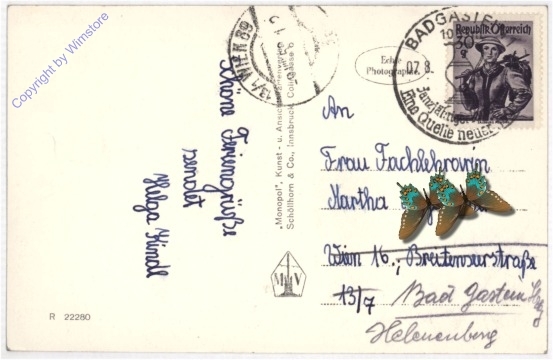 Copyright by Wimstore
Schöne Feriengrüße
sendet
Helga Kindl
R 22280
"Monopol", Kunst- u. Ansichtskartenverlag
Schöllhorn & Co., Innsbruck, Colingasse
M V
13/1 WIEN 89
Echte
Photographie
BADGASTEIN
Eine Quelle neuer
Republik Österreich
30
An
Frau Fachlehrerin
Martha
Wien 16., Breitenseerstraße
13/7
Bad Gastein
Helenenberg